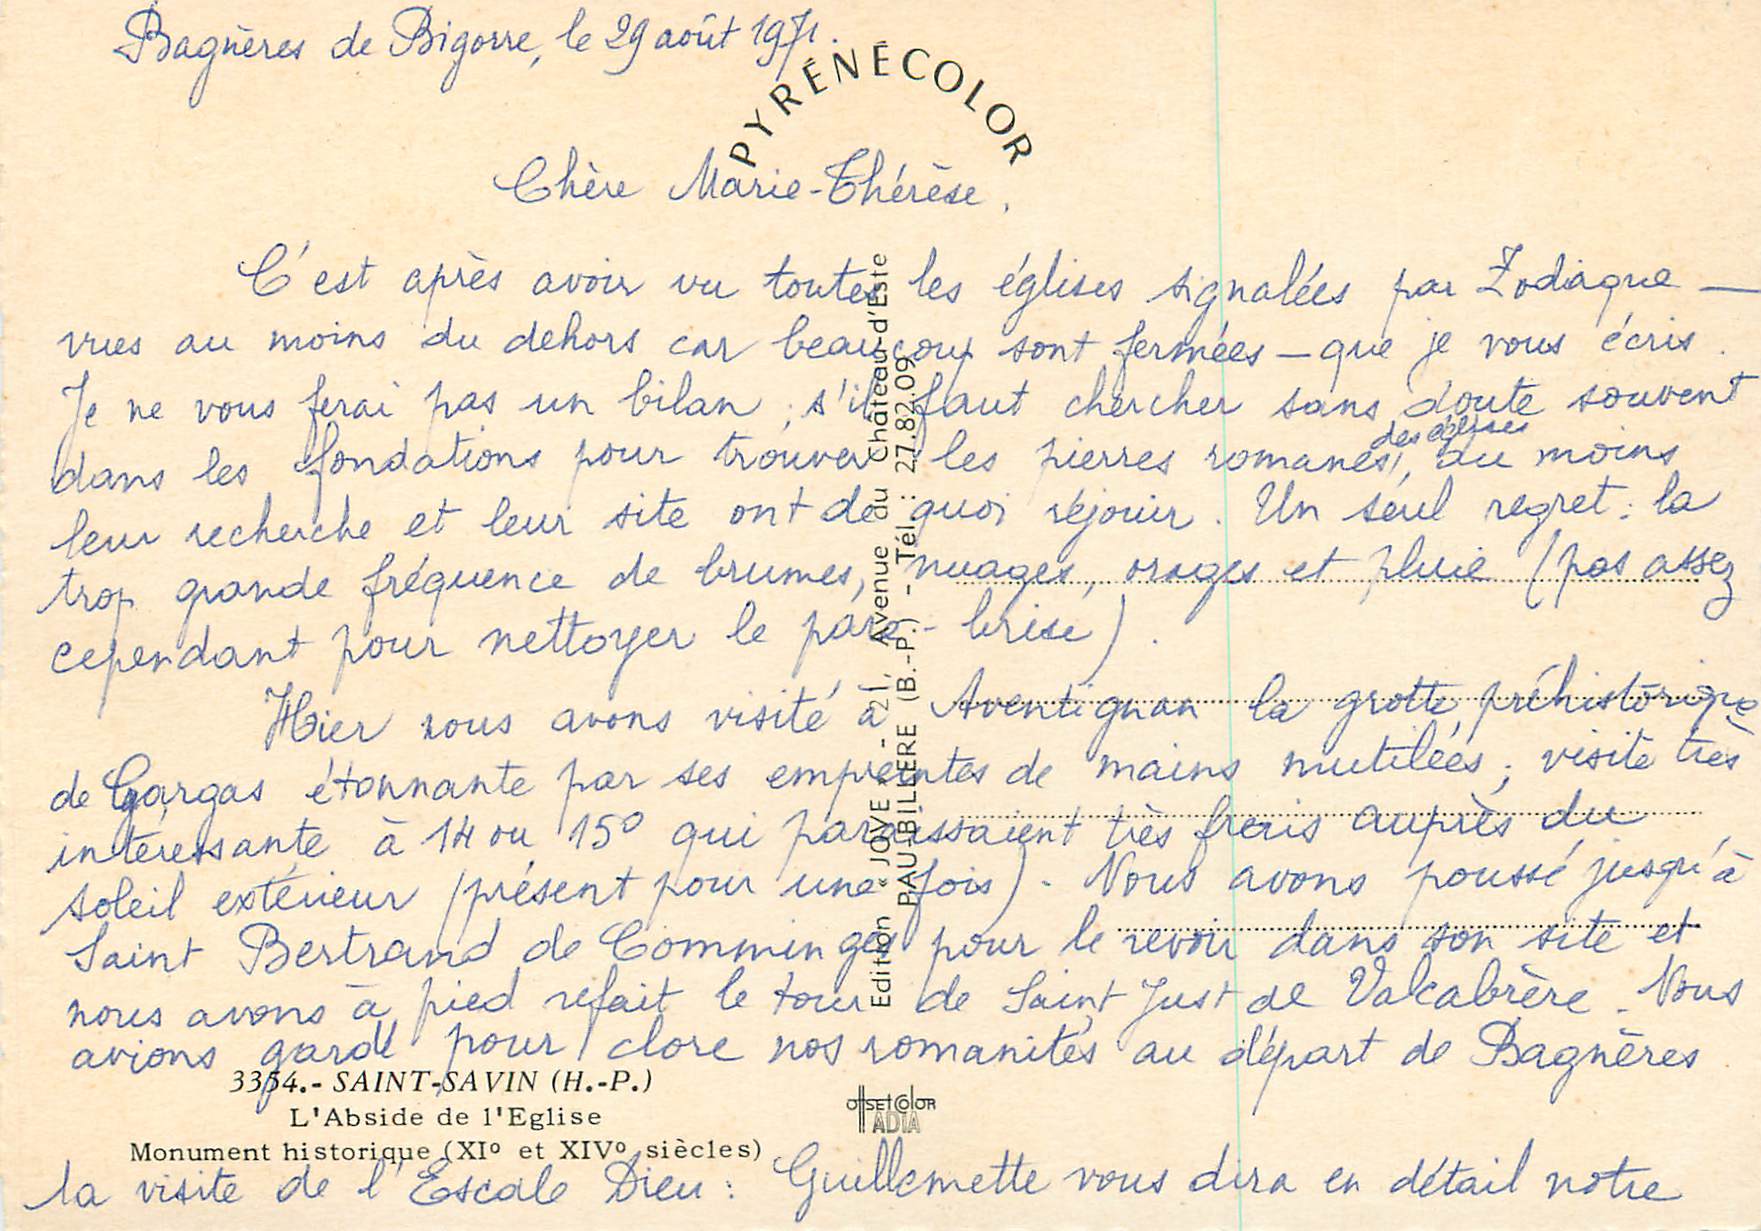 Bagnères de Bigorre, le 29 août 1971.
PYRÉNÉCOLOR
Chère Marie-Thérèse,
C'est après avoir vu toutes les églises signalées par Zodiaque —
vues au moins du dehors car beaucoup sont fermées — que je vous écris.
Je ne vous ferai pas un bilan ; s'il faut chercher sans doute souvent
dans les fondations pour trouver les pierres romanes, des églises au moins
leur recherche et leur site ont de quoi réjouir. Un seul regret : la
trop grande fréquence de brumes, nuages, orages et pluie (pas assez
cependant pour nettoyer le pare-brise).
Hier nous avons visité à Aventignan la grotte préhistorique
de Gargas étonnante par ses empreintes de mains mutilées ; visite très
intéressante à 14 ou 15° qui paraissaient très frais auprès du
soleil extérieur (présent pour une fois). Nous avons poussé jusqu'à
Saint Bertrand de Comminges pour le revoir dans son site et
nous avons à pied refait le tour de Saint Just de Valcabrère. Nous
avions gardé pour clore nos romanités au départ de Bagnères
la visite de l'Escale Dieu : Guillemette vous dira en détail notre
3354.- SAINT-SAVIN (H.-P.)
L'Abside de l'Eglise
Monument historique (XIº et XIVº siècles)
Edition « JOVE » - 21, Avenue du Château-d'Este
PAU-BILLERE (B.-P.) - Tél : 27.82.09
offset color
ADIA